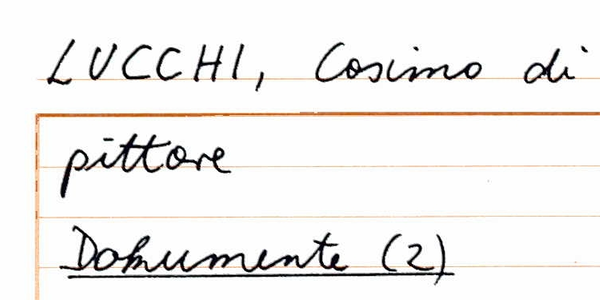 LUCCHI, Cosimo di
pittore
Dokumente (2)